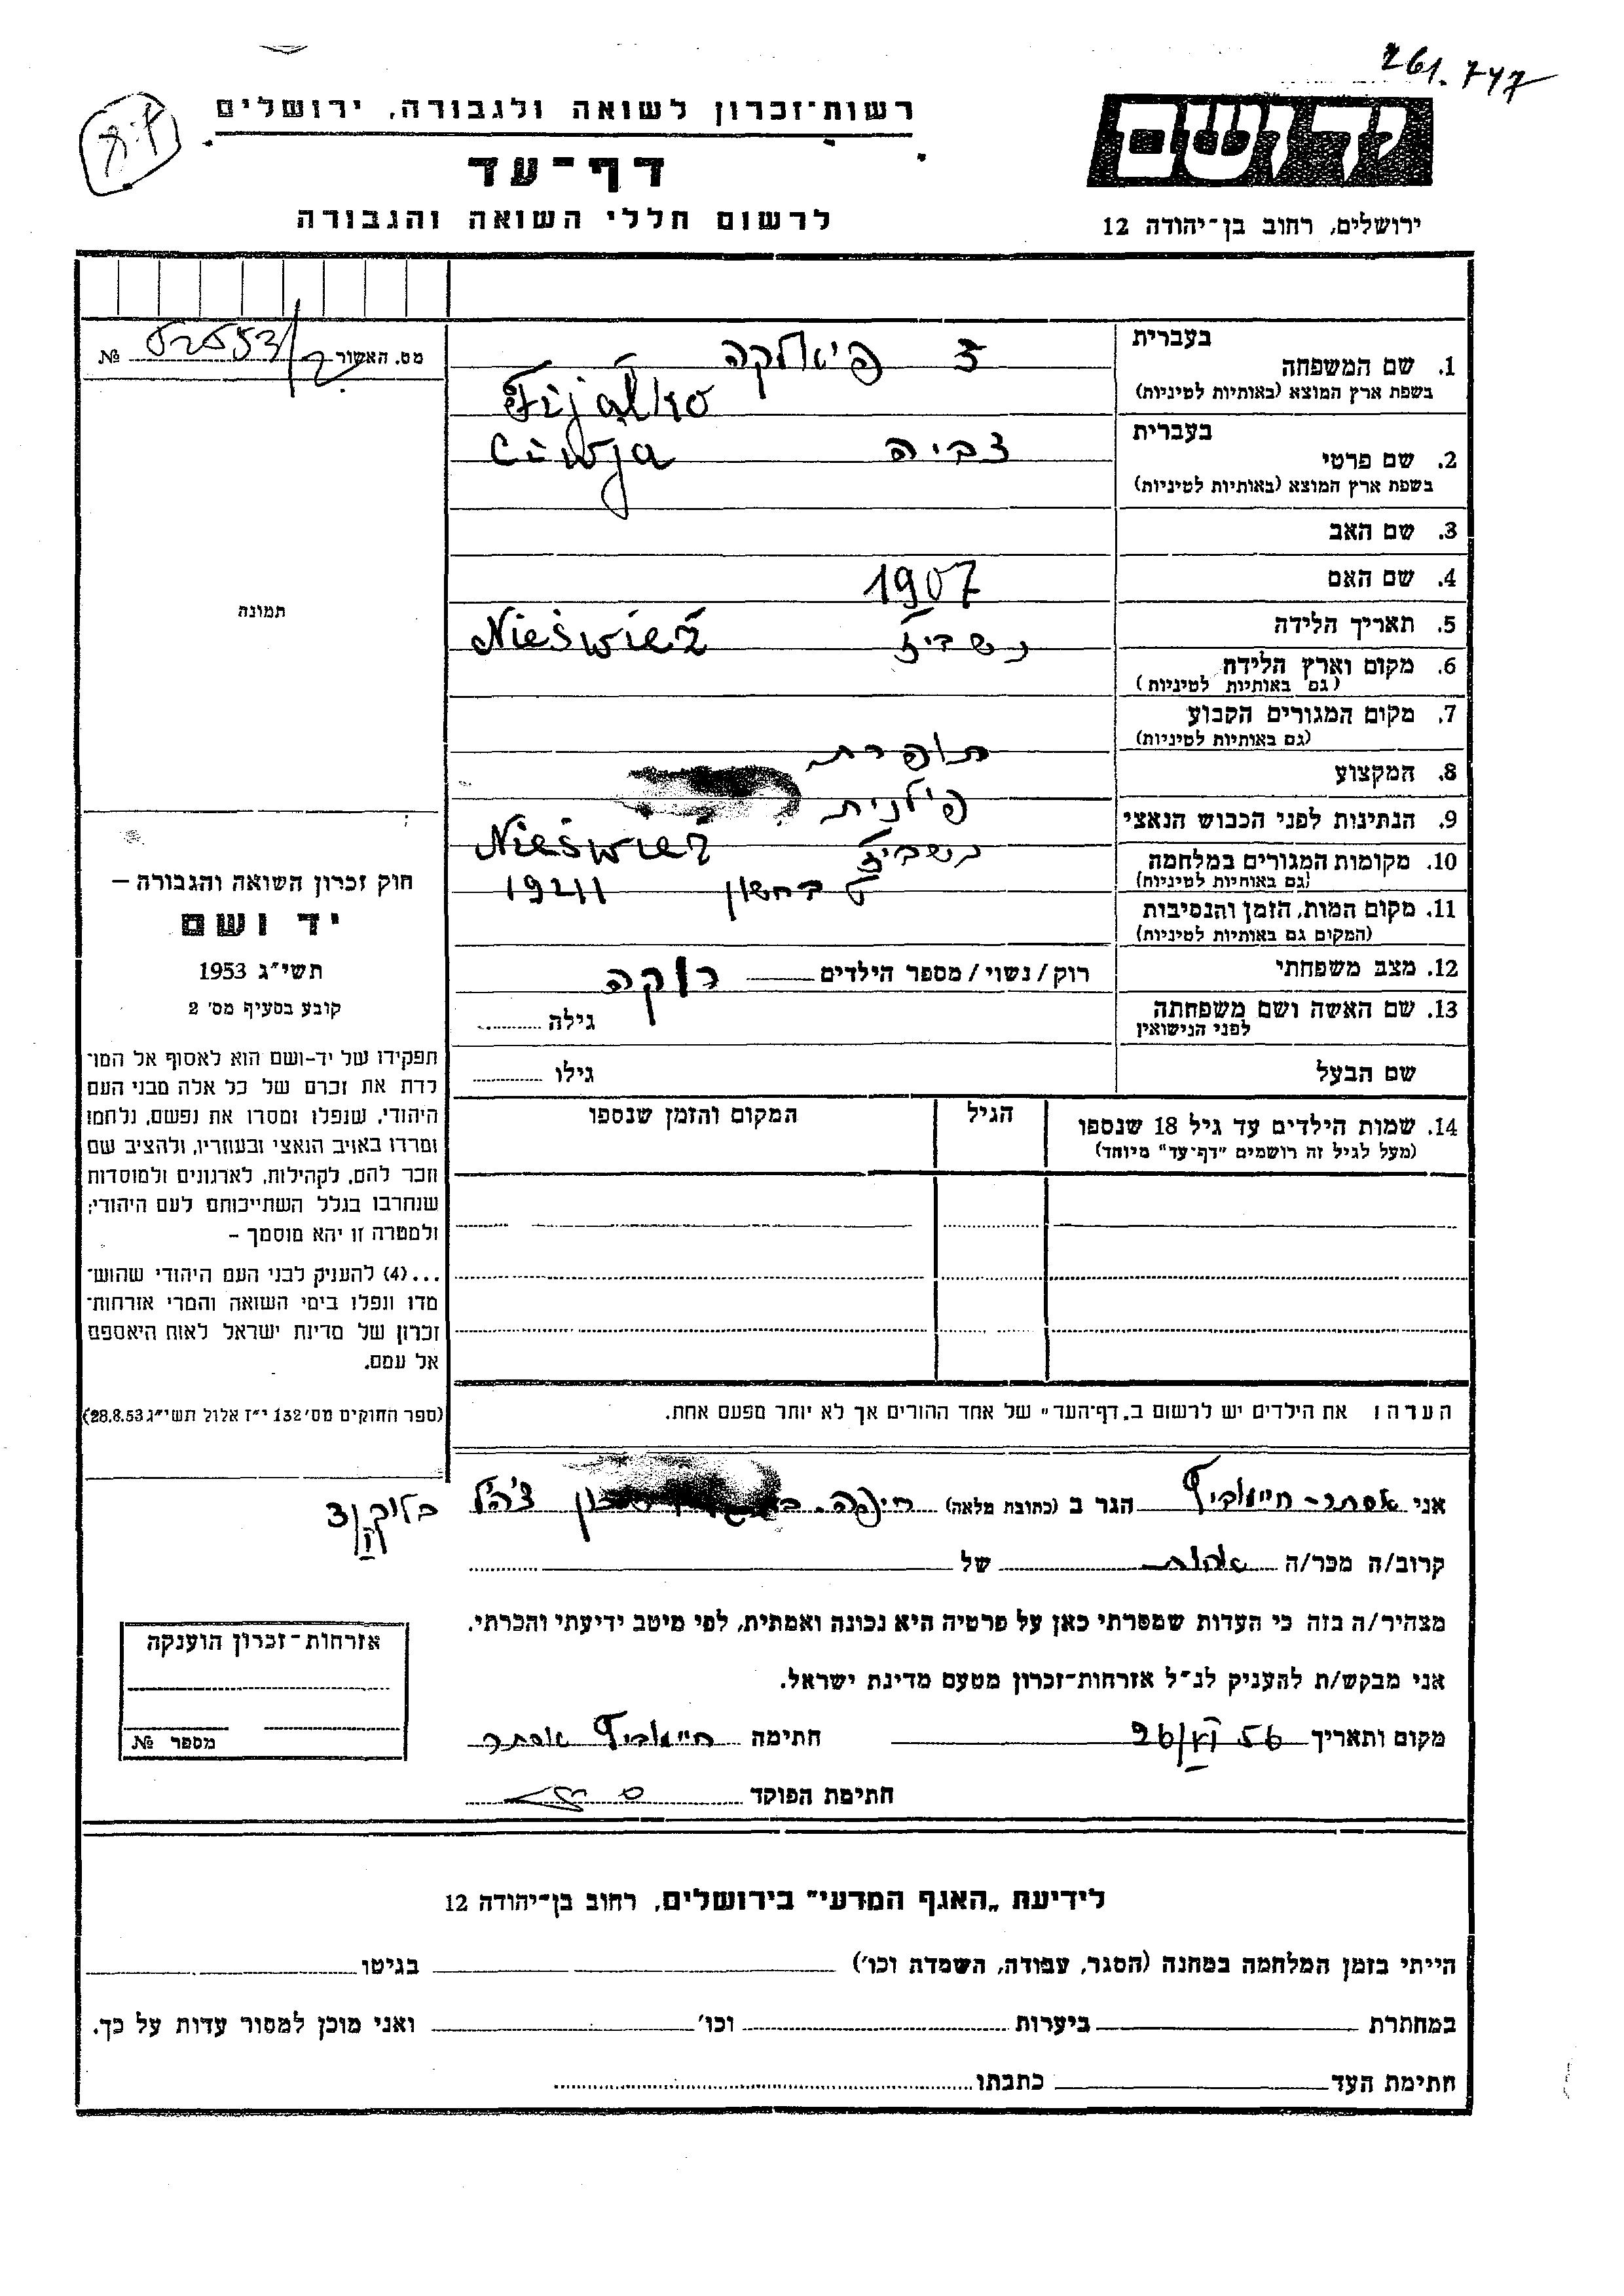 261.747
רשות־זכרון לשואה ולגבורה, ירושלים
דף־עד
לרשום חללי השואה והגבורה
יד ושם
ירושלים, רחוב בן־יהודה 12
מס. האשור № 52553/2
1. שם המשפחה
בעברית פיאלקה
בשפת ארץ המוצא (באותיות לטיניות) Fijałko
2. שם פרטי
בעברית צביה
בשפת ארץ המוצא (באותיות לטיניות) Ciwja
3. שם האב
4. שם האם
5. תאריך הלידה 1907
6. מקום וארץ הלידה נשביז Nieświeź
(גם באותיות לטיניות)
7. מקום המגורים הקבוע
(גם באותיות לטיניות)
8. המקצוע תופרת
9. הנתינות לפני הכבוש הנאצי פולנית
10. מקומות המגורים במלחמה נשביז Nieświeź
(גם באותיות לטיניות)
11. מקום המות, הזמן והנסיבות בחשון 1941
(המקום גם באותיות לטיניות)
12. מצב משפחתי רוק / נשוי / מספר הילדים רוקה
13. שם האשה ושם משפחתה
לפני הנישואין
גילה
שם הבעל גילו
14. שמות הילדים עד גיל 18 שנספו
(מעל לגיל זה רושמים "דף־עד" מיוחד)
הגיל
המקום והזמן שנספו
הערה: את הילדים יש לרשום ב„דף־העד" של אחד ההורים אך לא יותר מפעם אחת.
תמונה
חוק זכרון השואה והגבורה –
יד ושם
תשי"ג 1953
קובע בסעיף מס' 2
תפקידו של יד-ושם הוא לאסוף אל המו־
לדת את זכרם של כל אלה מבני העם
היהודי, שנפלו ומסרו את נפשם, נלחמו
ומרדו באויב הנאצי ובעוזריו, ולהציב שם
וזכר להם, לקהילות, לארגונים ולמוסדות
שנחרבו בגלל השתייכותם לעם היהודי;
ולמטרה זו יהא מוסמך –
...(4) להעניק לבני העם היהודי שהוש־
מדו ונפלו בימי השואה והמרי אזרחות־
זכרון של מדינת ישראל לאות היאספם
אל עמם.
(ספר החוקים מס' 132 י"ז אלול תשי"ג 28.8.53)
אני אסתר הגר ב (כתובת מלאה) חיפה צה"ל בלוק
קרוב/ה מכר/ה אחות של
מצהיר/ה בזה כי העדות שמסרתי כאן על פרטיה היא נכונה ואמתית, לפי מיטב ידיעתי והכרתי.
אני מבקש/ת להעניק לנ"ל אזרחות־זכרון מטעם מדינת ישראל.
מקום ותאריך 26/VI 56 חתימה אסתר
חתימת הפוקד
אזרחות־זכרון הוענקה
מספר №
לידיעת „האגף המדעי" בירושלים, רחוב בן־יהודה 12
הייתי בזמן המלחמה במחנה (הסגר, עבודה, השמדה וכו') בגיטו
במחתרת ביערות וכו' ואני מוכן למסור עדות על כך.
חתימת העד כתבתו